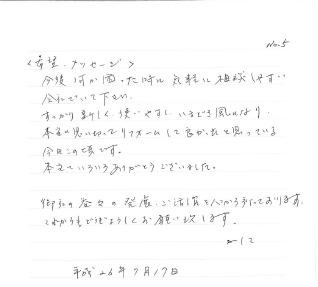 No.5
<希望・メッセージ>
今後何か困った時に気軽に相談しやすい
会社でいて下さい。
すっかり新しく、使いやすく、いまどき風になり、
本当に思い切ってリフォームして良かったと思っている
今日この頃です。
本当にいろいろありがとうございました。
御社の益々の発展、ご活躍を心からうたっております。
これからもどうぞよろしくお願い致します。
平成26年7月17日